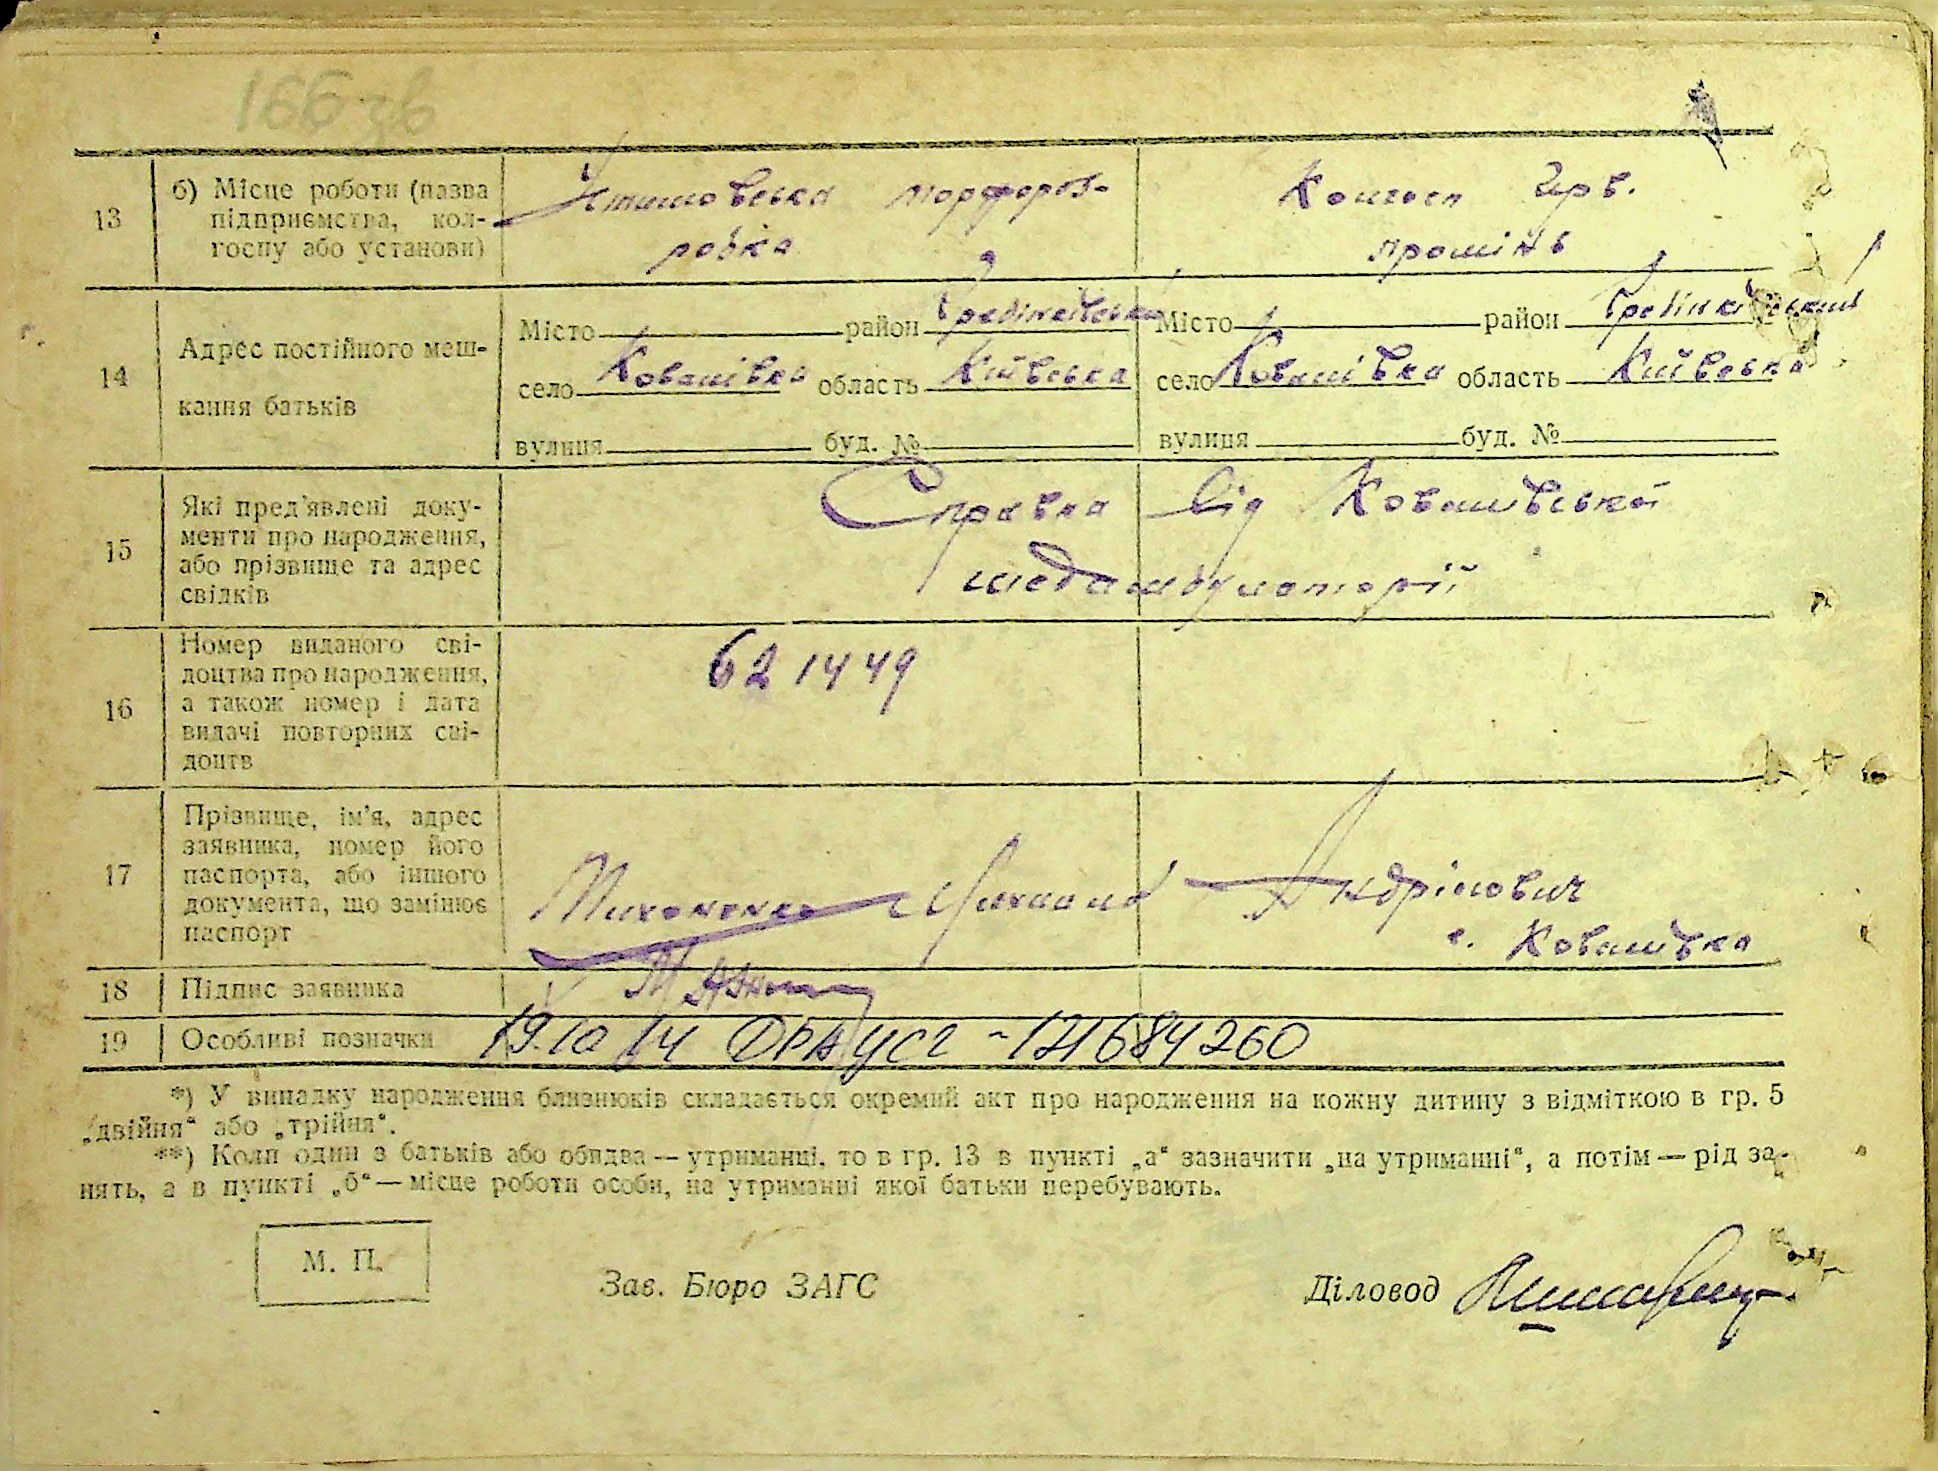 166 зв
13
б) Місце роботи (назва
підприємства, кол-
госпу або установи)
Устимовська торфороз-
робка
Колгосп Черв.
промінь
14
Адрес постійного меш-
кання батьків
Місто район Гребінківський
село Ковалівка область Київська
вулиця буд. №
Місто район Гребінківський
село Ковалівка область Київська
вулиця буд. №
15
Які пред'явлені доку-
менти про народження,
або прізвище та адрес
свідків
Справка від Ковалівської
медамбулаторії
16
Номер виданого сві-
доцтва про народження,
а також номер і дата
видачі повторних сві-
доцтв
621449
17
Прізвище, ім'я, адрес
заявника, номер його
паспорта, або іншого
документа, що замінює
паспорт
Михоненко Андрійович
с. Ковалівка
18
Підпис заявника
19
Особливі позначки
19.10.14 ДРАЦСГ -121684260
*) У випадку народження близнюків складається окремий акт про народження на кожну дитину з відміткою в гр. 5
„двійня“ або „трійня“.
**) Коли один з батьків або обидва — утриманці, то в гр. 13 в пункті „а“ зазначити „на утриманні“, а потім — рід за-
нять, а в пункті „б“ — місце роботи особи, на утриманні якої батьки перебувають.
М. П.
Зав. Бюро ЗАГС
Діловод